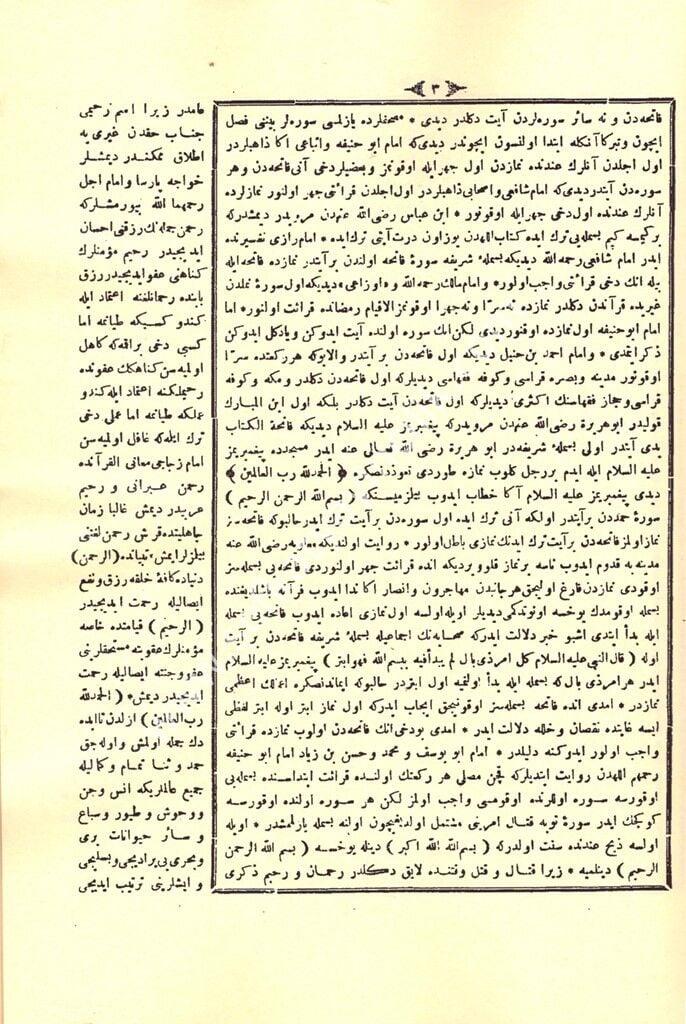 ۳
فاتحه‌دن و نه سائر سوره‌لردن آیت دکلدر دیدی * مصحفلرده یازلمسی سوره‌لر بیننی فصل
ایچون وتبرکا آنکله ابتدا اولنسون ایچوندر دیدی که امام ابو حنیفه واتباعی اکا ذاهبلردر
اول اجلدن آنلرك عندنده نمازدن اول جهرایله اوقونمز وبعضیلر دخی آنی فاتحه‌دن وهر
سوره‌دن آیتدر دیدی که امام شافعی واصحابی ذاهبلردر اول اجلدن قرائتی جهر اولنور نمازلرده
آنلرك عندنده اول دخی جهرایله اوقونور * ابن عباس رضی الله عنهدن مرویدر دیمشدرکه
برکیمسه کیم بسمله‌یی ترك ایده کتاب اللهدن یوزاون درت آیتی ترك ایده * امام رازی تفسیرنده
ایدر امام شافعی رحمه الله دیدیکه بسملهٔ شریفه سورهٔ فاتحه اولندن برآیتدر نمازده فاتحه ایله
بیله انك دخی قرائتی واجب اولور * وامام مالك رحمه الله و * اوزاعی * دیدیکه اول سورهٔ نملدن
غیریده قرآندن دکلدر نمازده نه سرّا ونه جهرا اوقونمز الاقیام رمضانده قرائت اولنور * اما
امام ابوحنیفه اول نمازده اوقنور دیدی لکن انك سوره اولنده آیت ایدوکن ویادکل ایدوکن
ذکر ایتمدی * وامام احمد بن حنبل دیدیکه اول فاتحه‌دن بر آیتدر والابوکه هررکعتده سرّا
اوقونور مدینه وبصره قراسی وکوفه فقهاسی دیدیلرکه اول فاتحه‌دن آیت دکلدر ومکه وکوفه
قراسی وحجاز فقهاسنك اکثری دیدیلرکه اول فاتحه‌دن آیت دکلدر بلکه اول ابن المبارك
قولیدر ابوهریره رضی الله عنهدن مرویدرکه پیغمبریمز علیه السلام دیدیکه فاتحة الکتاب
یدی آیتدر اولی بسملهٔ شریفه‌در ابو هریرة رضی الله تعالی عنه ایدر مسجدده پیغمبریمز
علیه السلام ایله ایدم بررجل کلوب نمازه طوردی تعوذدنصکره ﴿ الحمدلله رب العالمین ﴾
دیدی پیغمبریمز علیه السلام آکا خطاب ایدوب بیلزمیسنکه ( بسم الله الرحمن الرحیم )
سورهٔ حمددن برآیتدر اولکه آنی ترك ایده اول سوره‌دن برآیت ترك ایدر حالبوکه فاتحه‌سز
نماز اولمز فاتحه‌دن برآیت ترك ایدنك نمازی باطل اولور * روایت اولندیکه معاویه رضی الله عنه
مدینه‌یه قدوم ایدوب ناسه برنماز قلویردیکه انده قرائت جهر اولنوردی فاتحه‌یی بسمله‌سز
اوقودی نمازدن فارغ اولیجق هرجانبدن مهاجرون وانصار اکا ندا ایدوب قرآنه باشلدیغنده
بسمله اوقومدك یوخسه اونوتدکمی دیدیلر اویله اولسه اول نمازی اعاده ایدوب فاتحه‌یی بسمله
ایله بدأ ایتدی اشبو خبر دلالت ایدرکه صحابه‌نك اجماعیله بسملهٔ شریفه فاتحه‌دن بر آیت
اوله ( قال النبی علیه السلام کل امرذی بال لم یبدأفیه ببسم الله فهوابتر ) پیغمبریمز علیه السلام
ایدر هرامرذی بال که بسمله ایله بدأ اولنمیه اول ابتردر حالبوکه ایماندنصکره اعمالك اعظمی
نمازدر * امدی انده فاتحه بسمله‌سز اوقونیجق ایجاب ایدرکه اول نماز ابتر اوله ابتر لفظی
ایسه غایتده نقصان وخلله دلالت ایدر * امدی بودخی انك فاتحه‌دن اولوب نمازده قرائتی
واجب اولور ایدوکنه دلیلدر * امام ابو یوسف و محمد وحسن بن زیاد امام ابو حنیفه
رحمهم اللهدن روایت ایتدیلرکه قچن مصلی هر رکعتك اولنده قرائت ابتداسنده بسمله‌یی
اوقورسه سوره اوللرنده اوقومسی واجب اولمز لکن هر سوره اولنده اوقورسه
کوکچك ایدر سورهٔ توبه قتال امرینی مشتمل اولدیغیچون اولنه بسمله یازلممشدر * اویله
اولسه ذبح عندنده سنت اولدرکه ( بسم الله الله اکبر ) دینله یوخسه ( بسم الله الرحمن
الرحیم ) دینلمیه * زیرا قتال و قتل وقتنده لایق دکلدر رحمان و رحیم ذکری
عامدر زیرا اسم رحیمی
جناب حقدن غیری‌یه
اطلاق ممکندر دیمشلر
خواجه پارسا وامام اجل
رحمهما الله بیورمشلرکه
رحمن جمله‌نك رزقنی احسان
ایدیجیدر رحیم مؤمنلرك
کناهنی عفوایدیجیدر رزق
بابنده رحمانلغنه اعتماد ایله
کندو کسبیکه طیانمه اما
کسبی دخی براقه‌که کاهل
اولمیه‌سن کناهکك عفونده
رحیملکنه اعتماد ایله‌کندو
عملکه طیانمه اما عملی دخی
ترك ایلمه‌که غافل اولمیه‌سن
امام زجاجی معانی القرآنده
رحمن عبرانی و رحیم
عربیدر دیمش غالبا زمان
جاهلیتده قرش رحمن لفظنی
بیلزلر ایمش تبیانده (الرحمن)
دنیاده کافهٔ خلقه رزق ونفع
ایصالیله رحمت ایدیجیدر
( الرحیم ) قیامتده خاصه
مؤمنلرك عقوبته مستحقلرینی
عفو وجنته ایصالیله رحمت
ایدیجیدر دیمش * ( الحمدلله
رب العالمین ) ازلدن تاابده
دك جمله اولمش و اوله جق
حمد و ثنا تمام و کمالیله
جمیع عالملریکه انس وجن
و وحوش و طیور و سباع
و سائر حیوانات بری
وبحری‌یی یرادیجی وبسلیجی
و ایشلرینی ترتیب ایدیجی